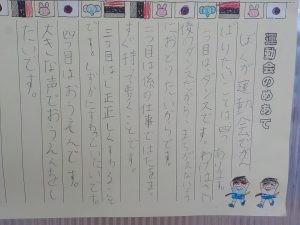 運動会のめあて
ぼくが運動会でがん
ばりたいことは四つあります。
一つ目はダンスです。わけは
後のダンスだから、まちがえないで
おどりたいからです。
二つ目は係の仕事ではたをま
すぐ持って歩くことです。
三つ目はし正正しくすわること
です。しずかにすわっていたいで
す。
四つ目はおうえんです。
大きな声でおうえんをし
たいです。